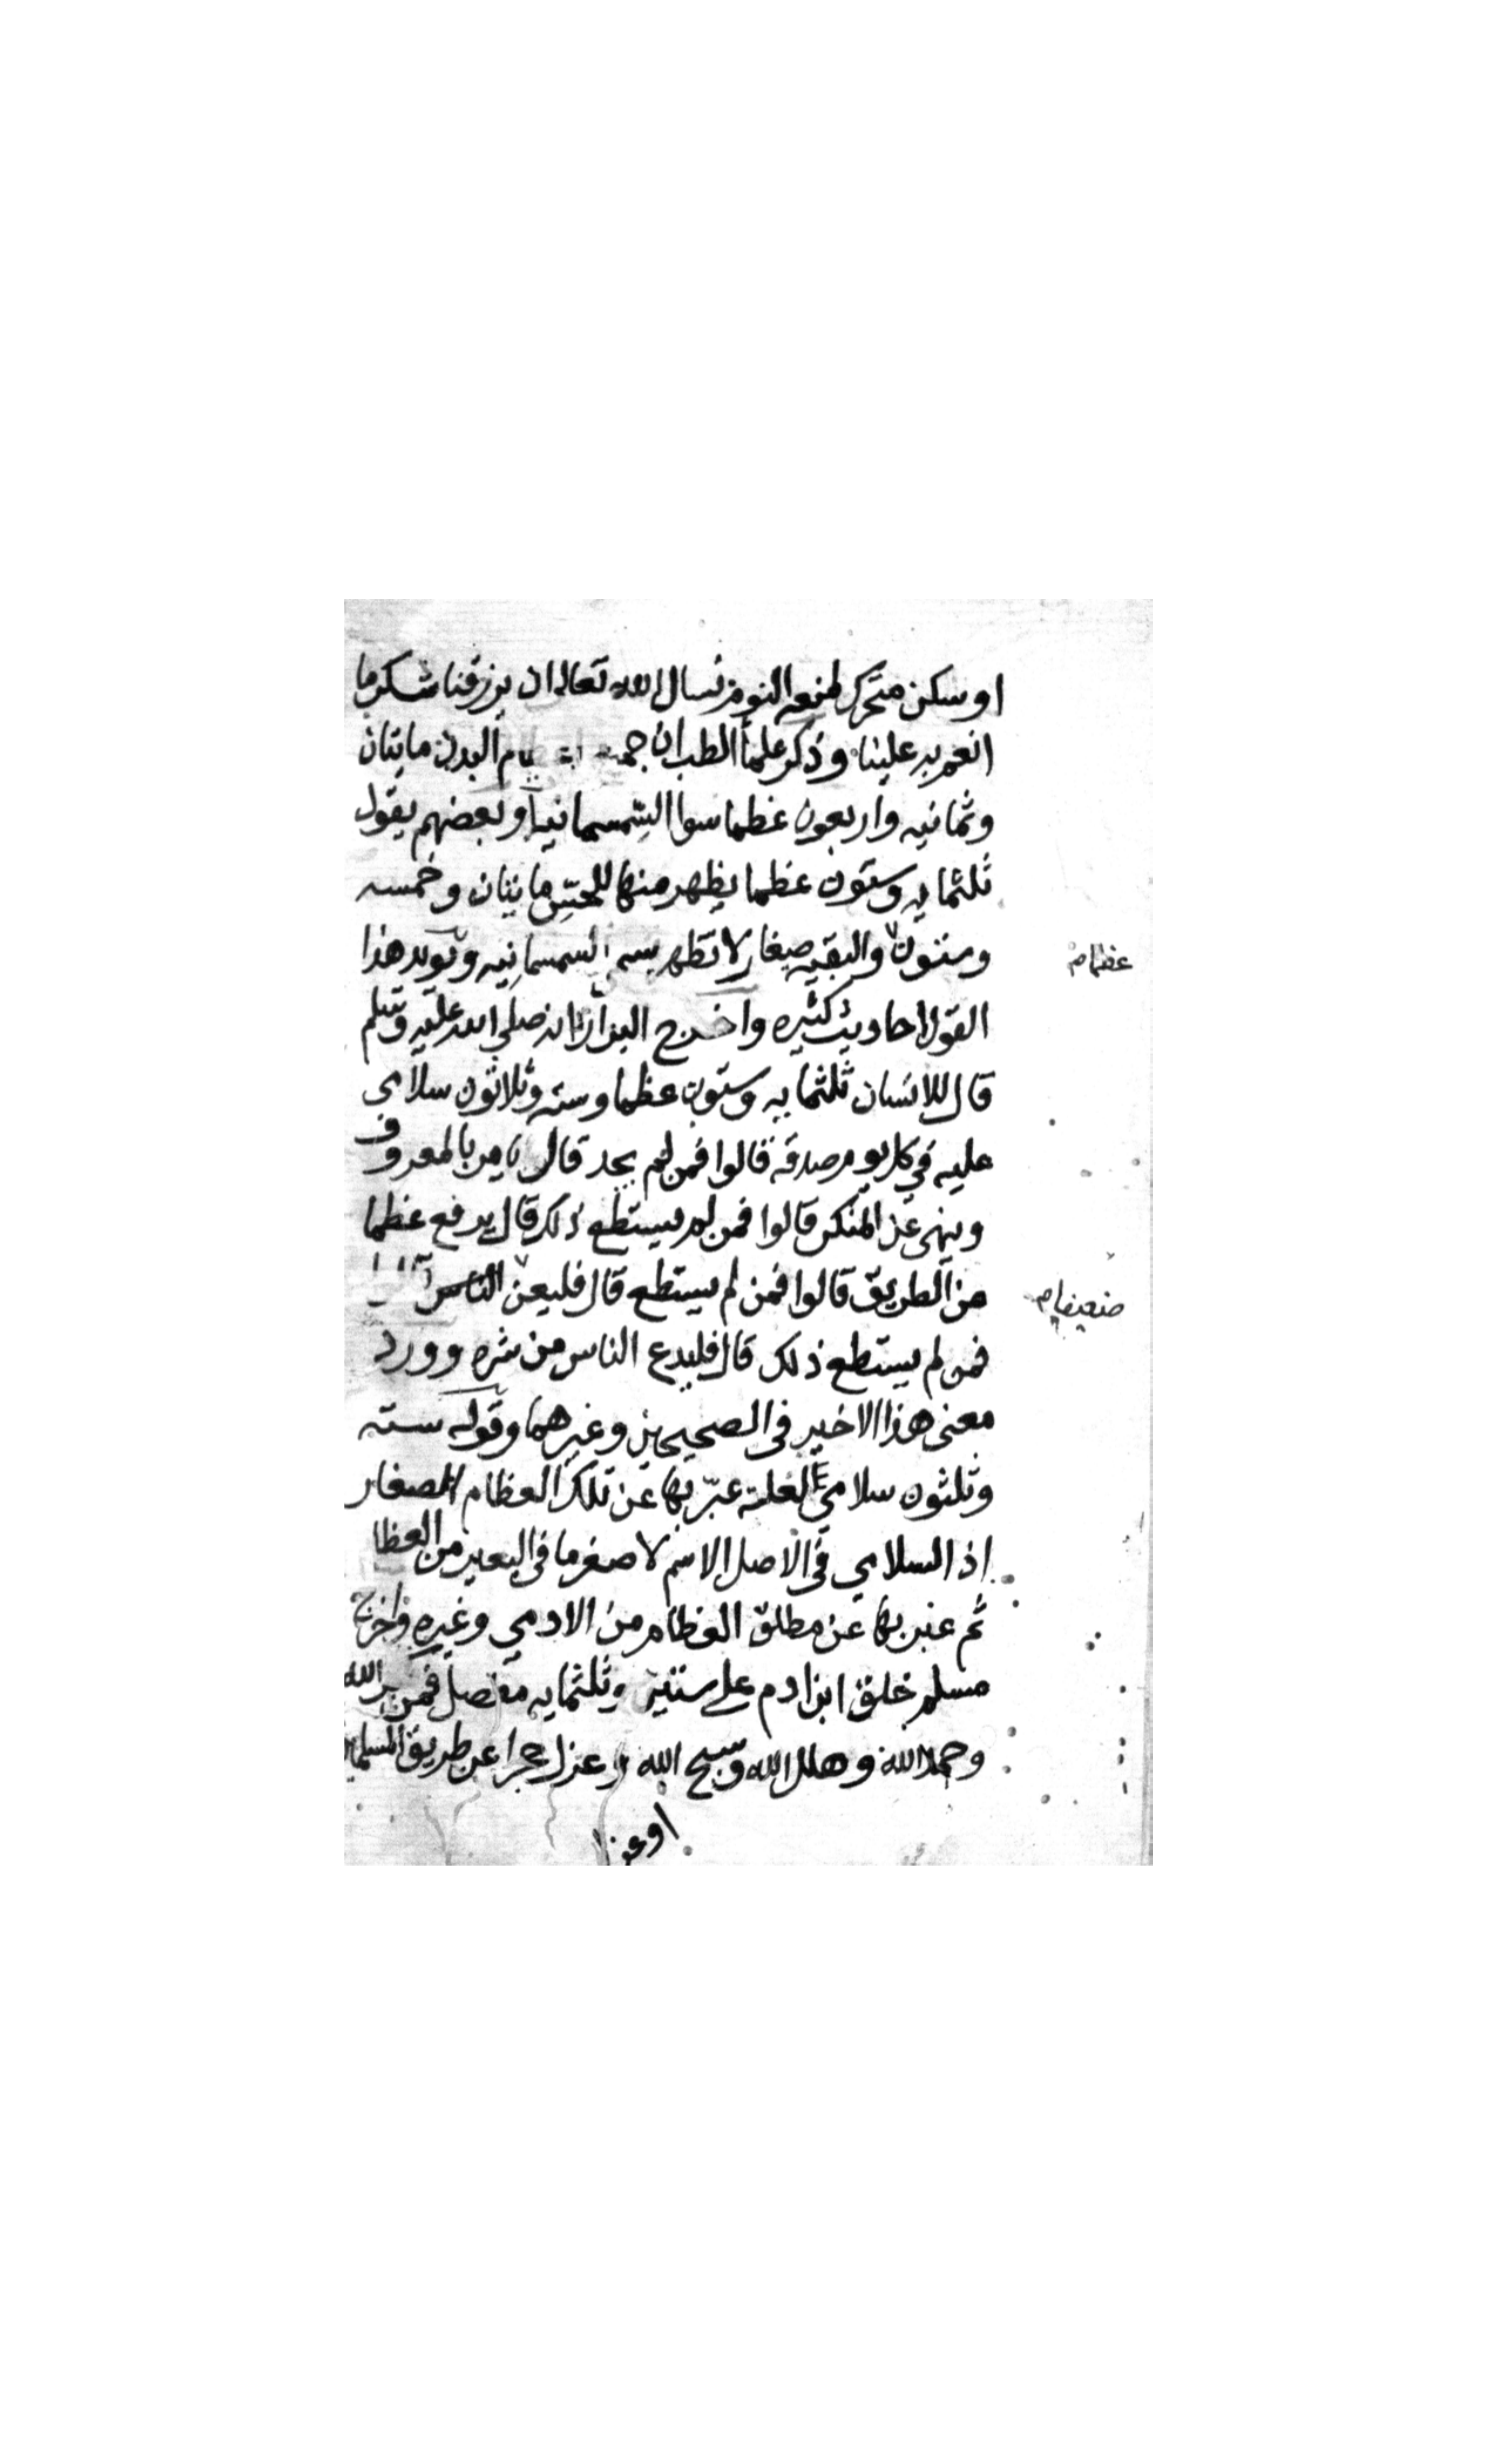 او سكن متحرك لمنعه النوم نسال الله تعالى ان يرزقنا شكر ما
انعم به علينا وذكر علما الطب ان البدن مايتان
وثمانيه واربعون عظما سوا السمسمانيه وبعضهم يقول
ثلثمايه وستون عظما يظهر منها للحس مايتان وخمسه
وستون والبقيه صغار لا تظهر السمسمانيه ويويد هذا
القول احاديث كثيره واخرج البزار انه صلى الله عليه وسلم
قال للانسان ثلثمايه وستون عظما وسته وثلاثون سلامى
عليه في كل يوم صدقه قالوا فمن لم يجد قال يامر بالمعروف
وينهى عن المنكر قالوا فمن لم يستطع ذلك قال يرفع عظما
من الطريق قالوا فمن لم يستطع قال فليعن الناس
فمن لم يستطع ذلك قال فليدع الناس من شره وورد
معنى هذا الاخير في الصحيحين وغيرهما وقوله سته
وثلثون سلامى لعله عبّر بها عن تلك العظام الصغار
اذ السلامى في الاصل الاسم لاصغر ما في البعير من العظا
ثم عبر بها عن مطلق العظام من الادمي وغيره واخرج
مسلم خلق ابن ادم على ستين وثلثمايه مفصل فمن كبر الله
وحمد الله وهلل الله وسبح الله وعزل حجرا عن طريق المسلمين
او عزل
عظام
ضعيفا م